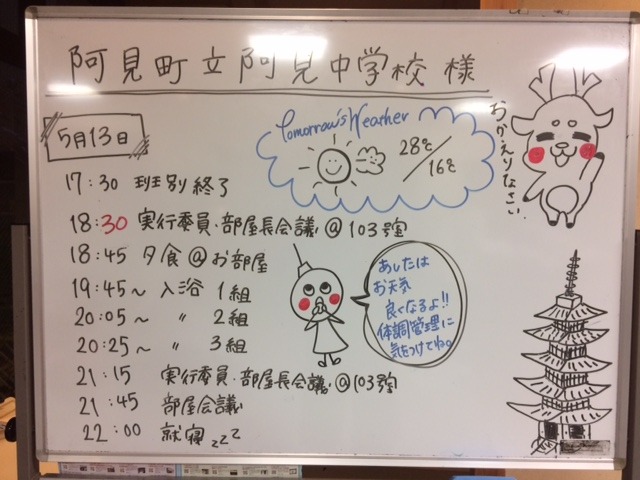 阿見町立阿見中学校様
5月13日
Tomorrow's Weather
28℃/16℃
おかえりなさい
17:30 班別終了
18:30 実行委員・部屋長会議@103号室
18:45 夕食@お部屋
19:45~ 入浴 1組
20:05~ 〃 2組
20:25~ 〃 3組
21:15 実行委員・部屋長会議@103号室
21:45 部屋会議
22:00 就寝zzz
あしたは
お天気
良くなるよ!!
体調管理に
気をつけてね。